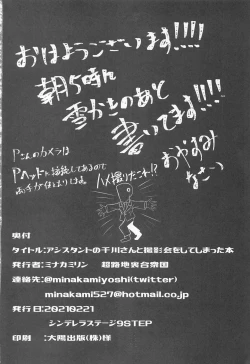 おはようございます!!!!
朝5時ん
雪かものあと
書いてます!!!!
Pさんのカメラは
Pヘッドに接続してあるので
ハメ撮りだこれ!?
おやすみ
なさーい
奥付
タイトル:アシスタントの千川さんと撮影会をしてしまった本
発行者:ミナカミリン　超路地裏台衆国
連絡先:@minakamiyoshi(twitter)
minakami527@hotmail.co.jp
発行日:20210221
シンデレラステージ9STEP
印刷　:大陽出版(株)様